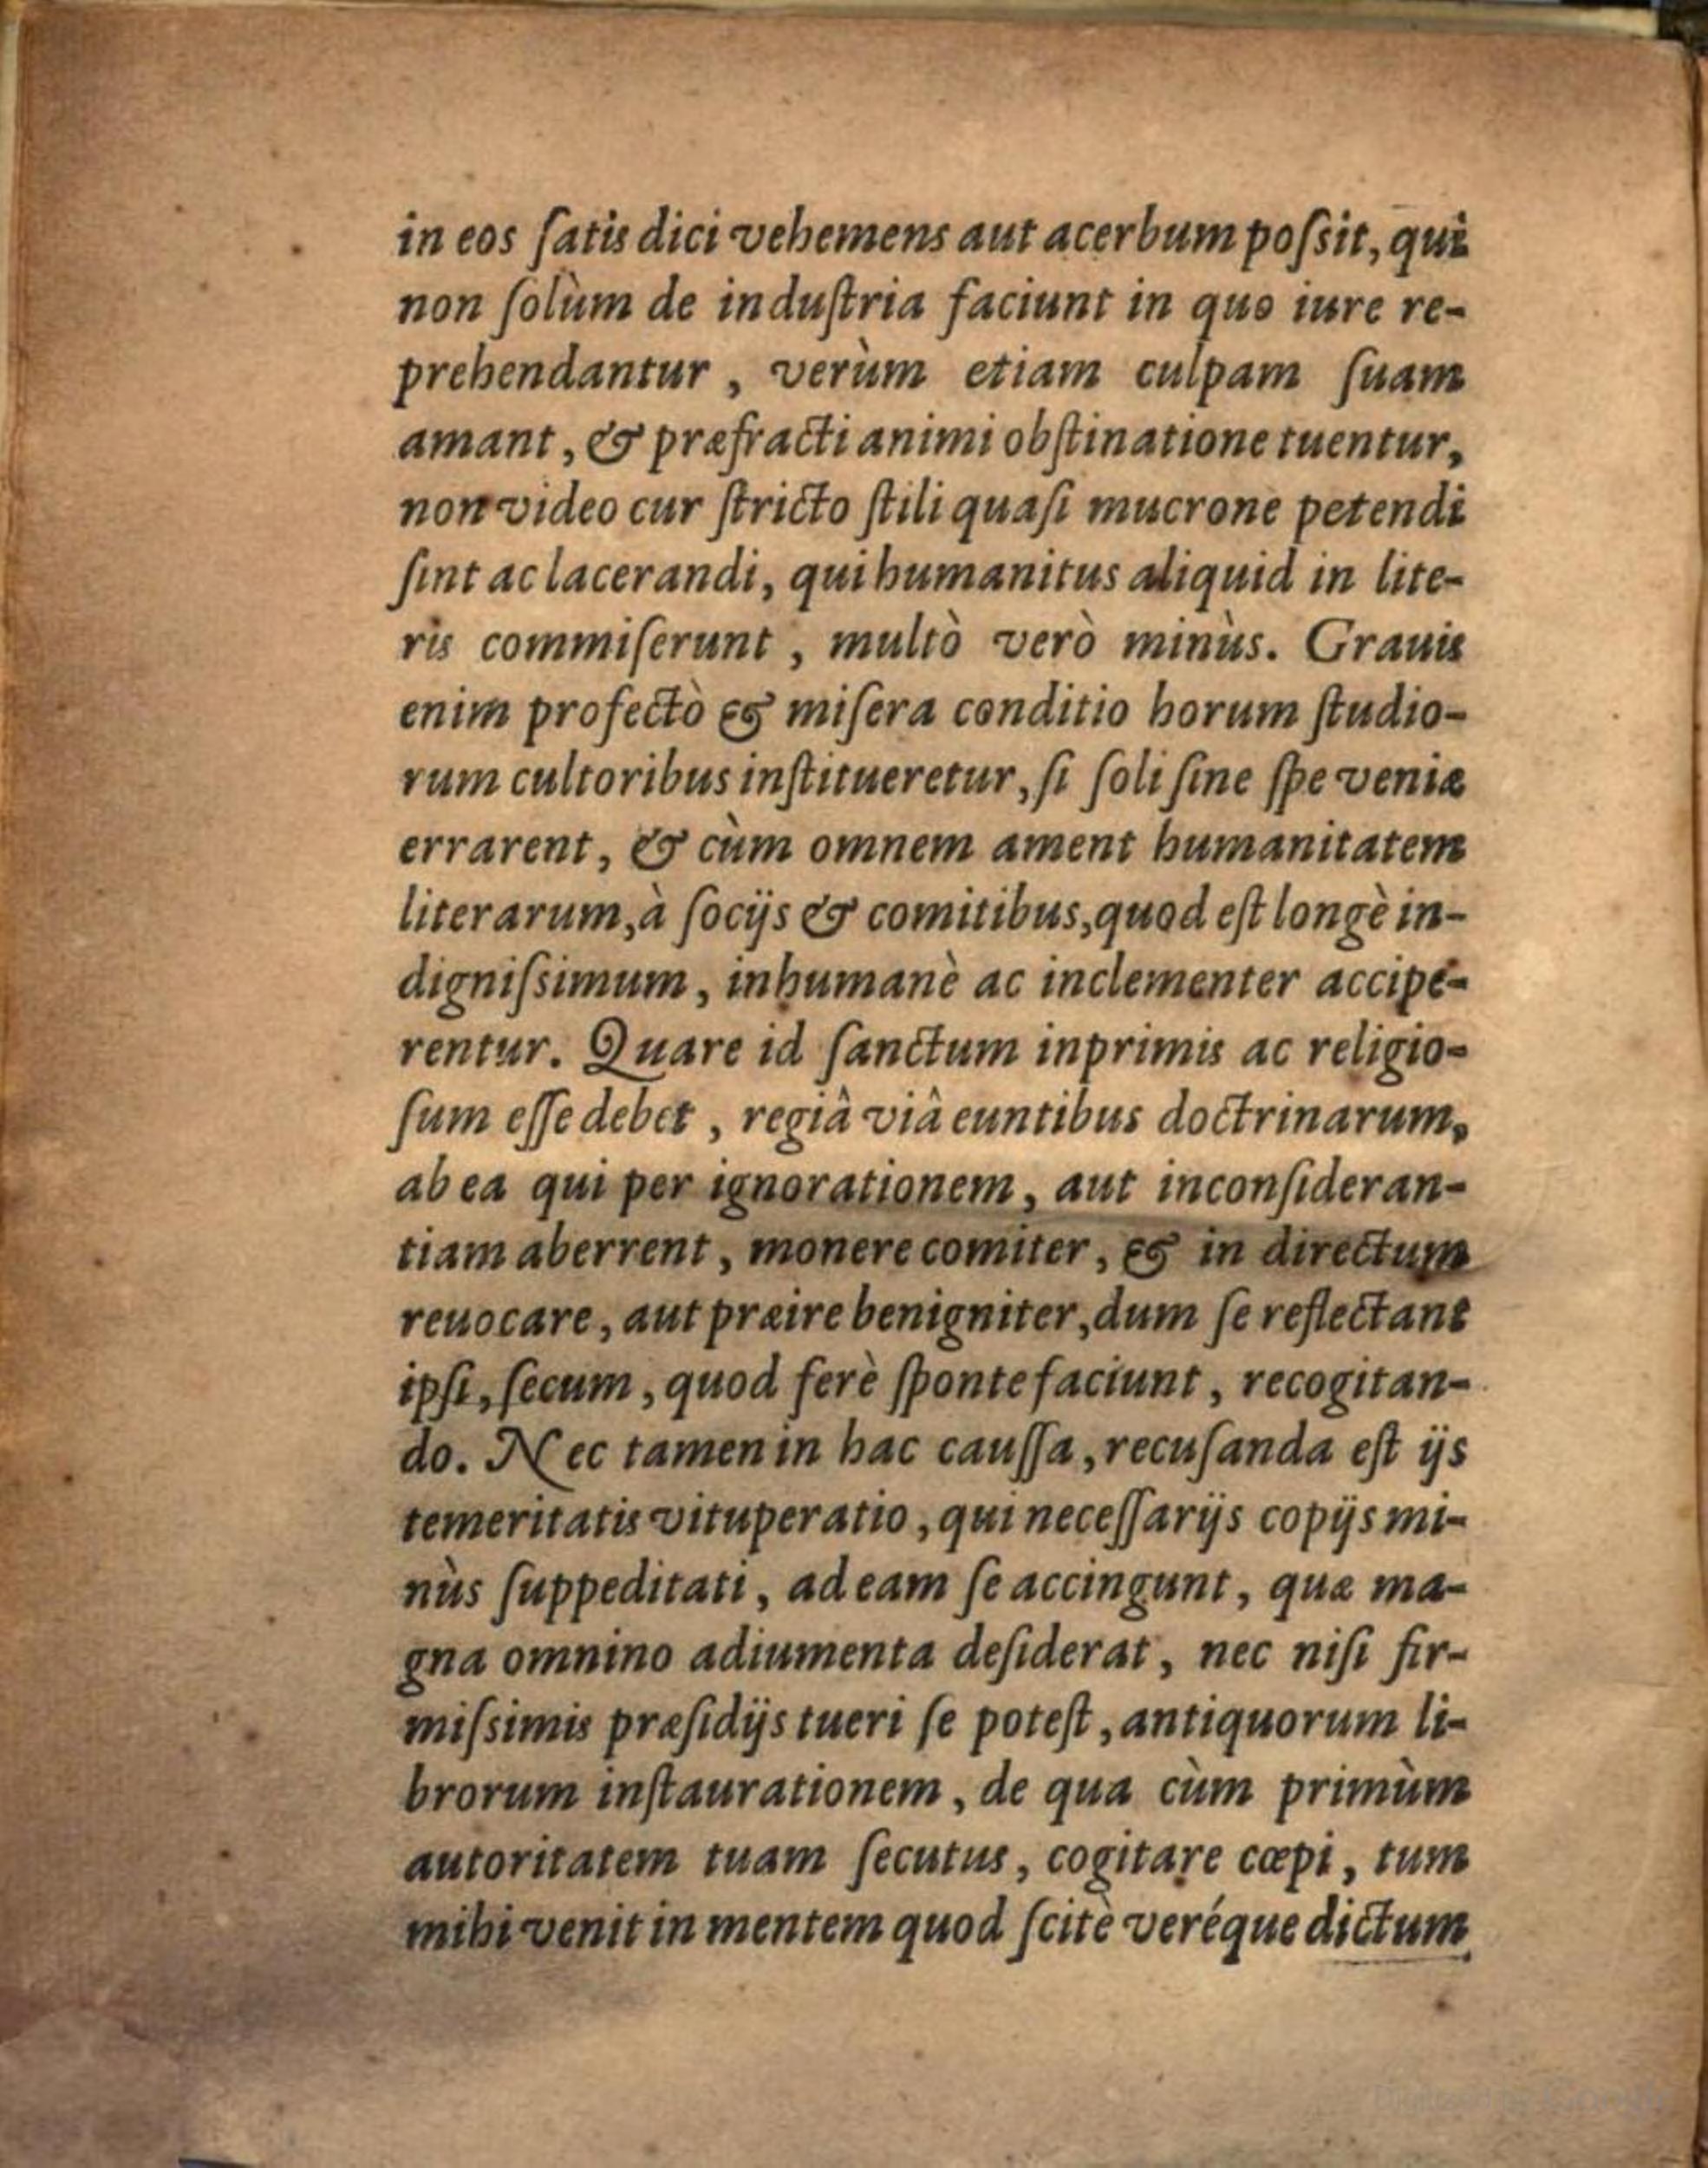 in eos ſatis dici vehemens aut acerbum poſsit, qui
non ſolùm de induſtria faciunt in quo iure re-
prehendantur, verùm etiam culpam ſuam
amant, & præfracti animi obſtinatione tuentur,
non video cur ſtricto ſtili quaſi mucrone petendi
ſint ac lacerandi, qui humanitus aliquid in lite-
ris commiſerunt, multò verò minùs. Grauis
enim profectò & miſera conditio horum ſtudio-
rum cultoribus inſtitueretur, ſi ſoli ſine ſpe veniæ
errarent, & cùm omnem ament humanitatem
literarum, à ſocijs & comitibus, quod eſt longè in-
digniſsimum, inhumanè ac inclementer accipe-
rentur. Quare id ſanctum inprimis ac religio-
ſum eſſe debet, regiâ viâ euntibus doctrinarum,
ab ea qui per ignorationem, aut inconſideran-
tiam aberrent, monere comiter, & in directum
reuocare, aut præire benigniter, dum ſe reflectant
ipſi, ſecum, quod ferè ſponte faciunt, recogitan-
do. Nec tamen in hac cauſſa, recuſanda eſt ijs
temeritatis vituperatio, qui neceſſarijs copijs mi-
nùs ſuppeditati, ad eam ſe accingunt, quæ ma-
gna omnino adiumenta deſiderat, nec niſi fir-
miſsimis præſidijs tueri ſe poteſt, antiquorum li-
brorum inſtaurationem, de qua cùm primùm
autoritatem tuam ſecutus, cogitare cœpi, tum
mihi venit in mentem quod ſcitè veréque dictum
Digitized by Google